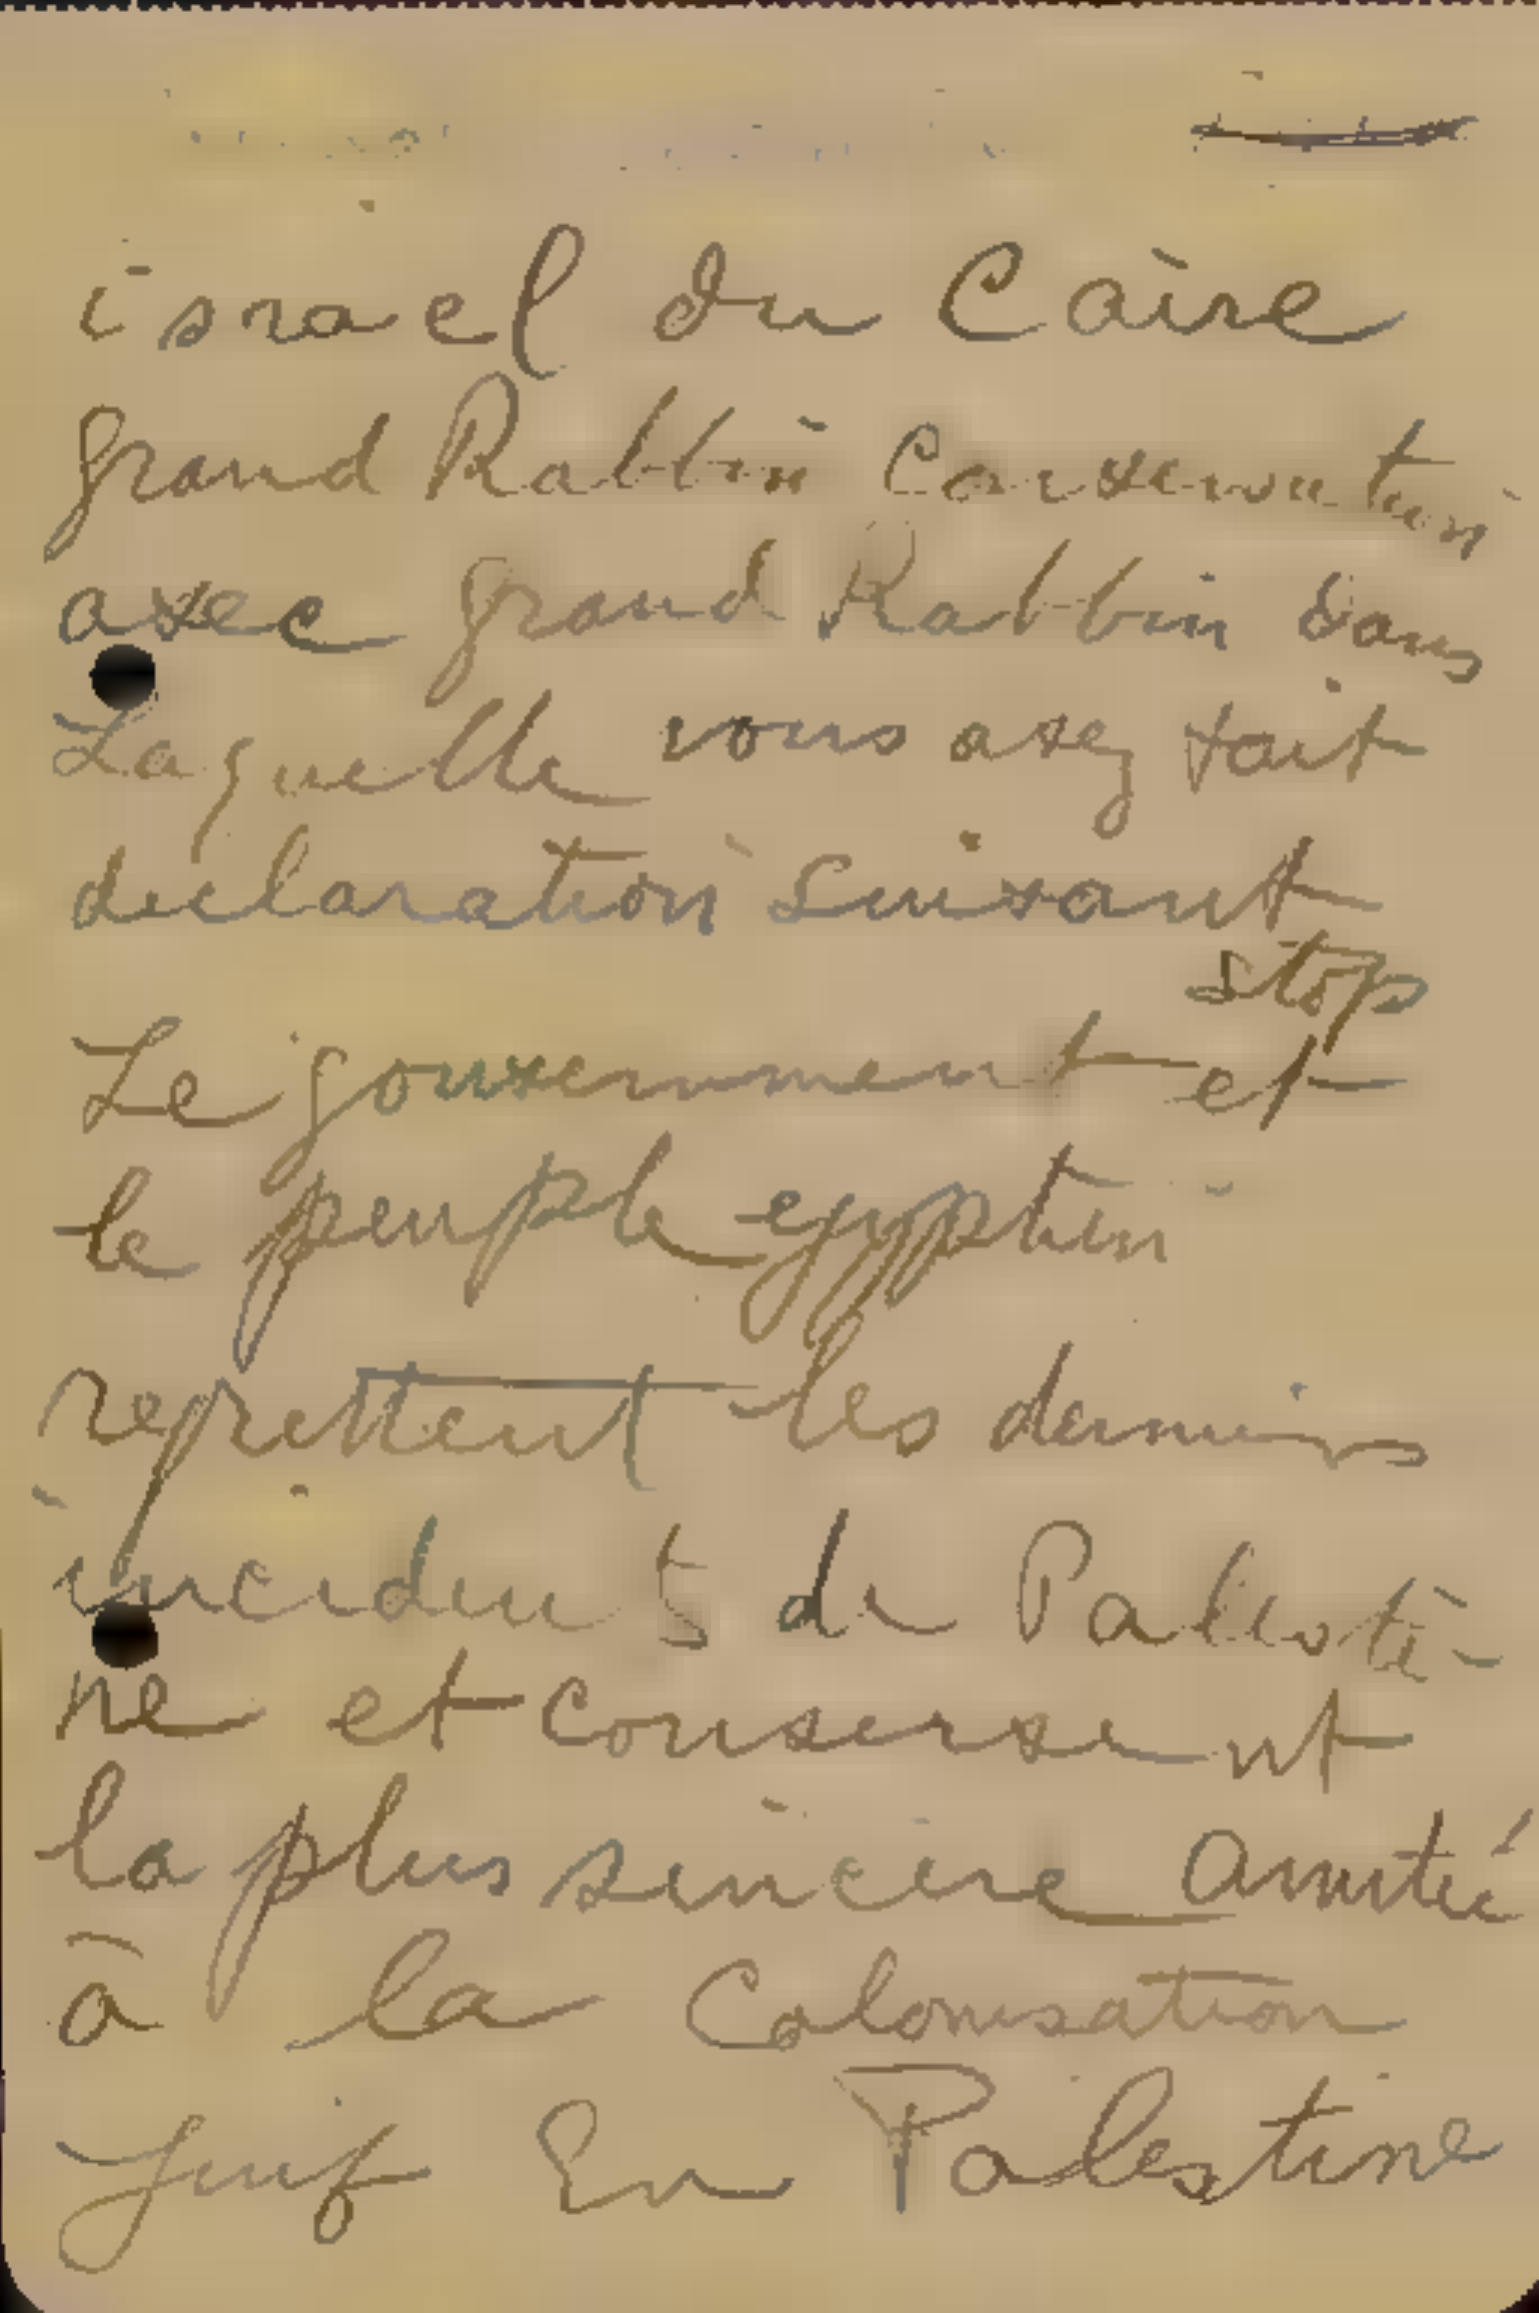 israel du Caire
grand Rabbin Conservation
avec grand Rabbin dans
Laquelle vous avez fait
declaration suivant
stop
Le gouvernement et
le peuple egyptien
regrettent les derniers
incidents de Palesti-
ne et conservent
la plus sincère amitié
à la Colonisation
Juif En Palestine